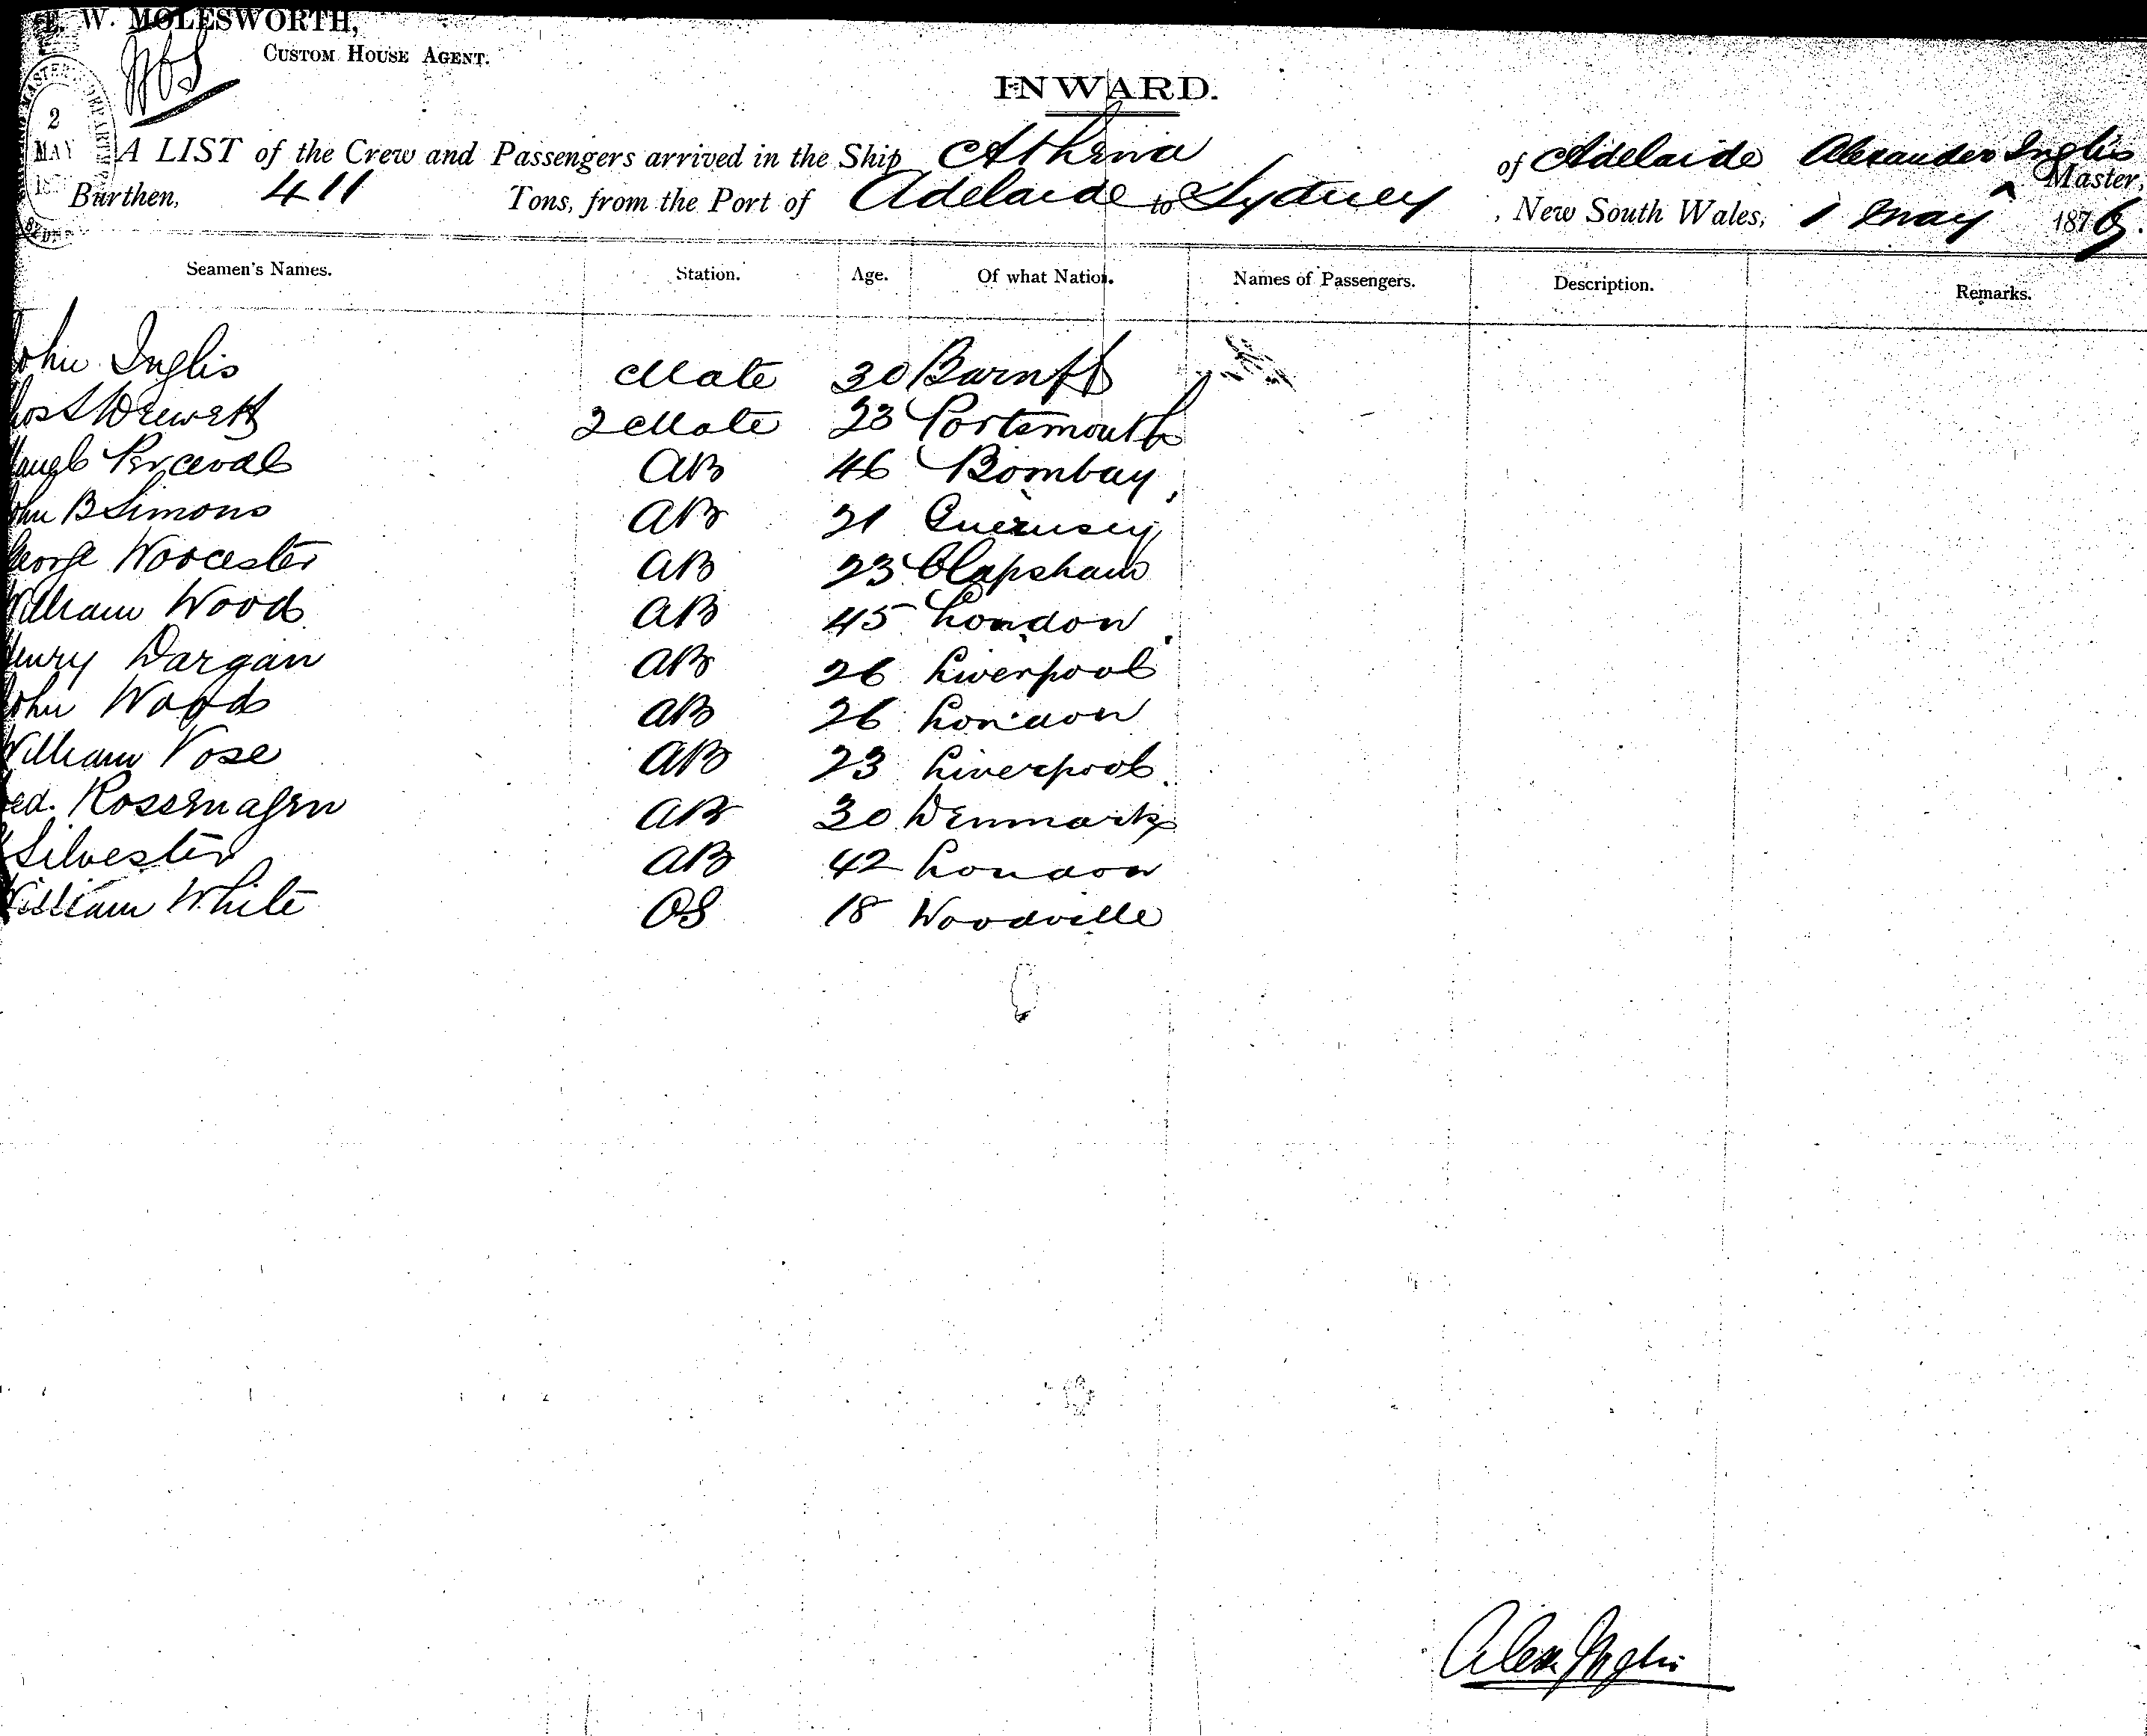 E. W. MOLESWORTH,
CUSTOM HOUSE AGENT.
INWARD.
2
MAY
A LIST of the Crew and Passengers arrived in the Ship Athena of Adelaide Alexander Inglis Master,
Burthen, 411 Tons, from the Port of Adelaide to Sydney, New South Wales, 1 May 1876.
Seamen's Names. Station. Age. Of what Nation. Names of Passengers. Description. Remarks.
John Inglis Mate 30 Barnff
Drewett 2 Mate 23 Portsmouth
Perceval AB 46 Bombay
John B Simons AB 21 Guernsey
George Worcester AB 23 Clapsham
William Wood AB 45 London
Henry Dargan AB 26 Liverpool
John Woods AB 26 London
William Vose AB 23 Liverpool
ed. Rossenagen AB 30 Denmark
Silvester AB 42 London
William White OS 18 Woodville
Alex Inglis